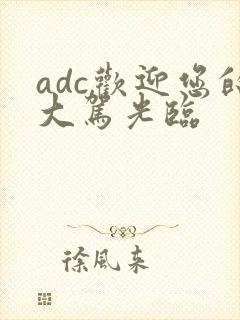 adc歡迎您的
大駕光臨
徐風来